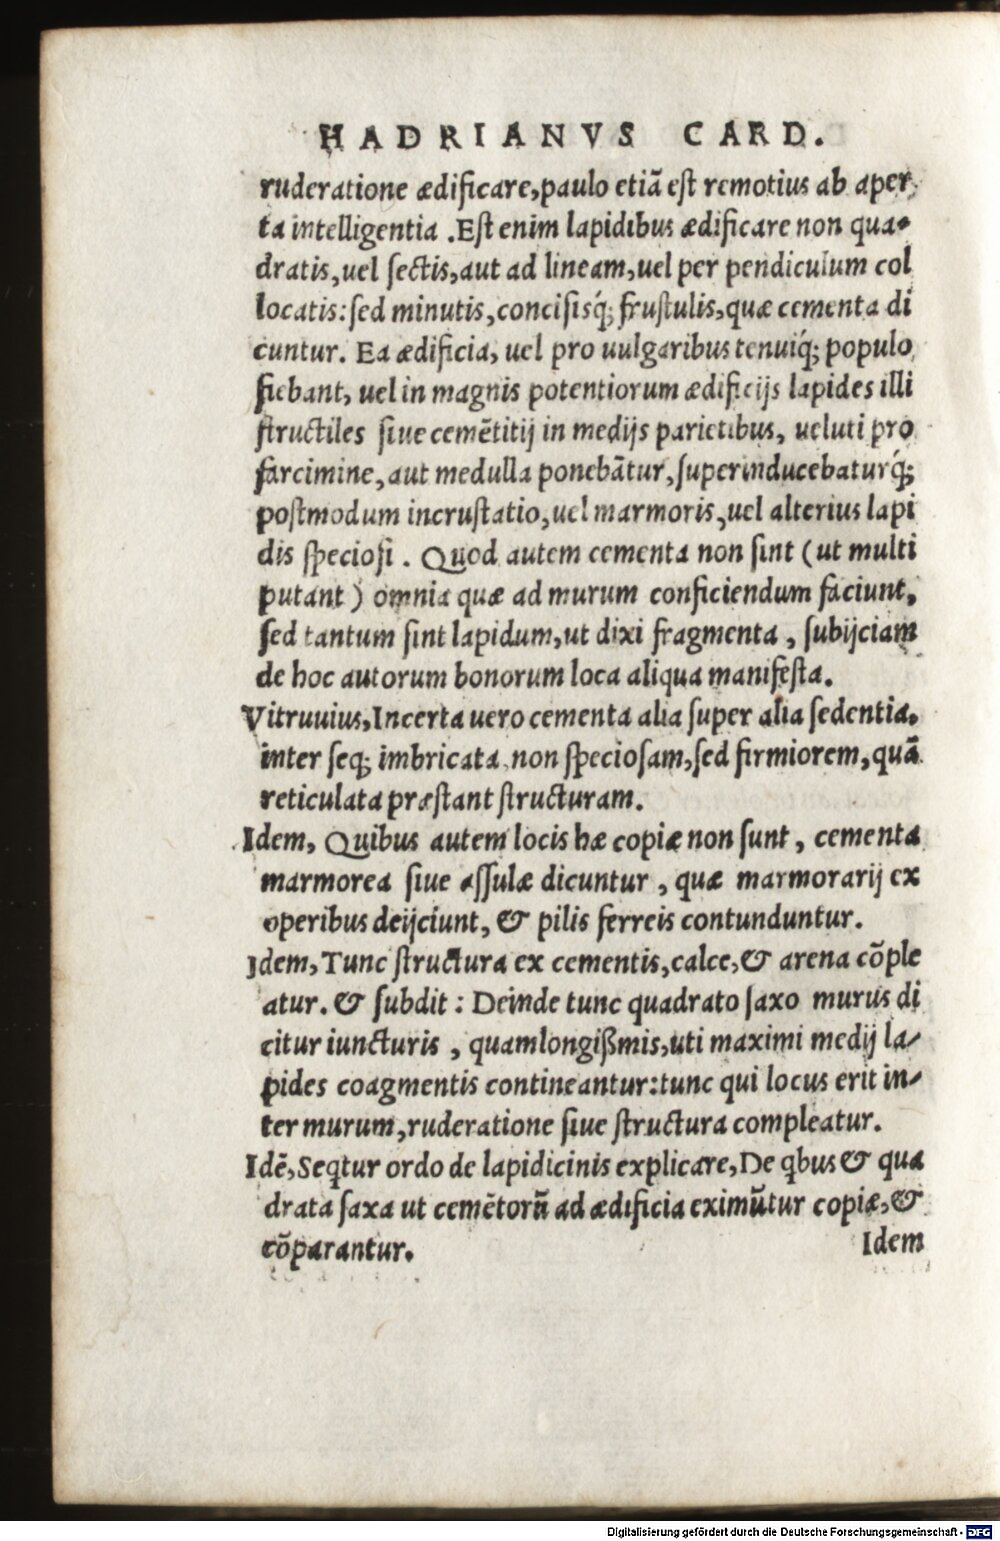 HADRIANVS CARD.
ruderatione ædificare, paulo etiã est remotius ab aper,
ta intelligentia . Est enim lapidibus ædificare non qua-
dratis, uel sectis, aut ad lineam, uel per pendiculum col
locatis: sed minutis, concisisq́; frustulis, quæ cementa di
cuntur. Ea ædificia, uel pro uulgaribus tenuiq́; populo
fiebant, uel in magnis potentiorum ædificijs lapides illi
structiles siue cemẽtitij in medijs parietibus, ueluti pro
farcimine, aut medulla ponebãtur, superinducebaturq́;
postmodum incrustatio, uel marmoris, uel alterius lapi
dis speciosi . Quod autem cementa non sint ( ut multi
putant ) omnia quæ ad murum conficiendum faciunt,
sed tantum sint lapidum, ut dixi fragmenta , subijciam
de hoc autorum bonorum loca aliqua manifesta.
Vitruuius, Incerta uero cementa alia super alia sedentia.
inter seq; imbricata non speciosam, sed firmiorem, quã
reticulata præstant structuram.
Idem, Quibus autem locis hæ copiæ non sunt , cementa
marmorea siue assulæ dicuntur , quæ marmorarij ex
operibus deijciunt, & pilis ferreis contunduntur.
Idem, Tunc structura ex cementis, calce, & arena cõple
atur. & subdit : Deinde tunc quadrato saxo murus di
citur iuncturis , quamlongißmis, uti maximi medij la-
pides coagmentis contineantur: tunc qui locus erit in-
ter murum, ruderatione siue structura compleatur.
Idẽ, Seqtur ordo de lapidicinis explicare, De qbus & qua
drata saxa ut cemẽtorũ ad ædificia eximũtur copiæ, &
cõparantur.
Idem
Digitalisierung gefördert durch die Deutsche Forschungsgemeinschaft - DFG